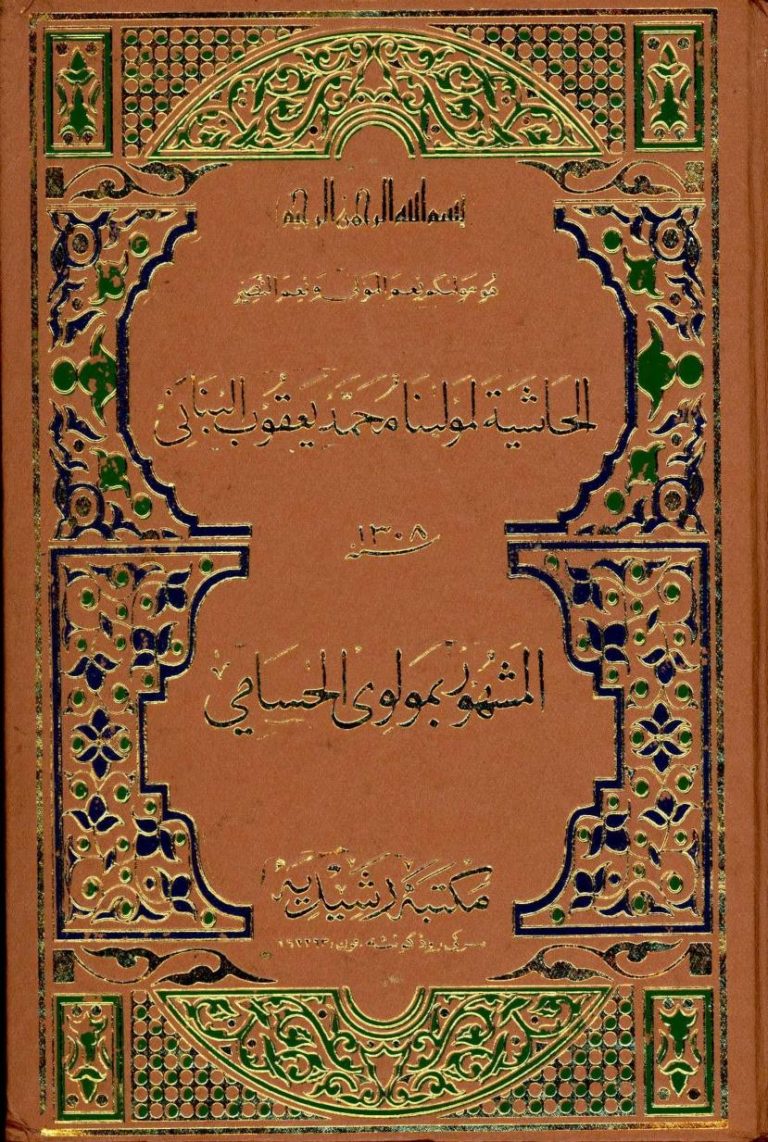 بسم الله الرحمن الرحيم
هو مولىكم نعم المولى و نعم النصير
الحاشية لمولينا محمد يعقوب البناني
سنه ١٣٠٨
المشهور بمولوى الحسامي
مكتبة رشيديه
سركى رود كوئته فون: